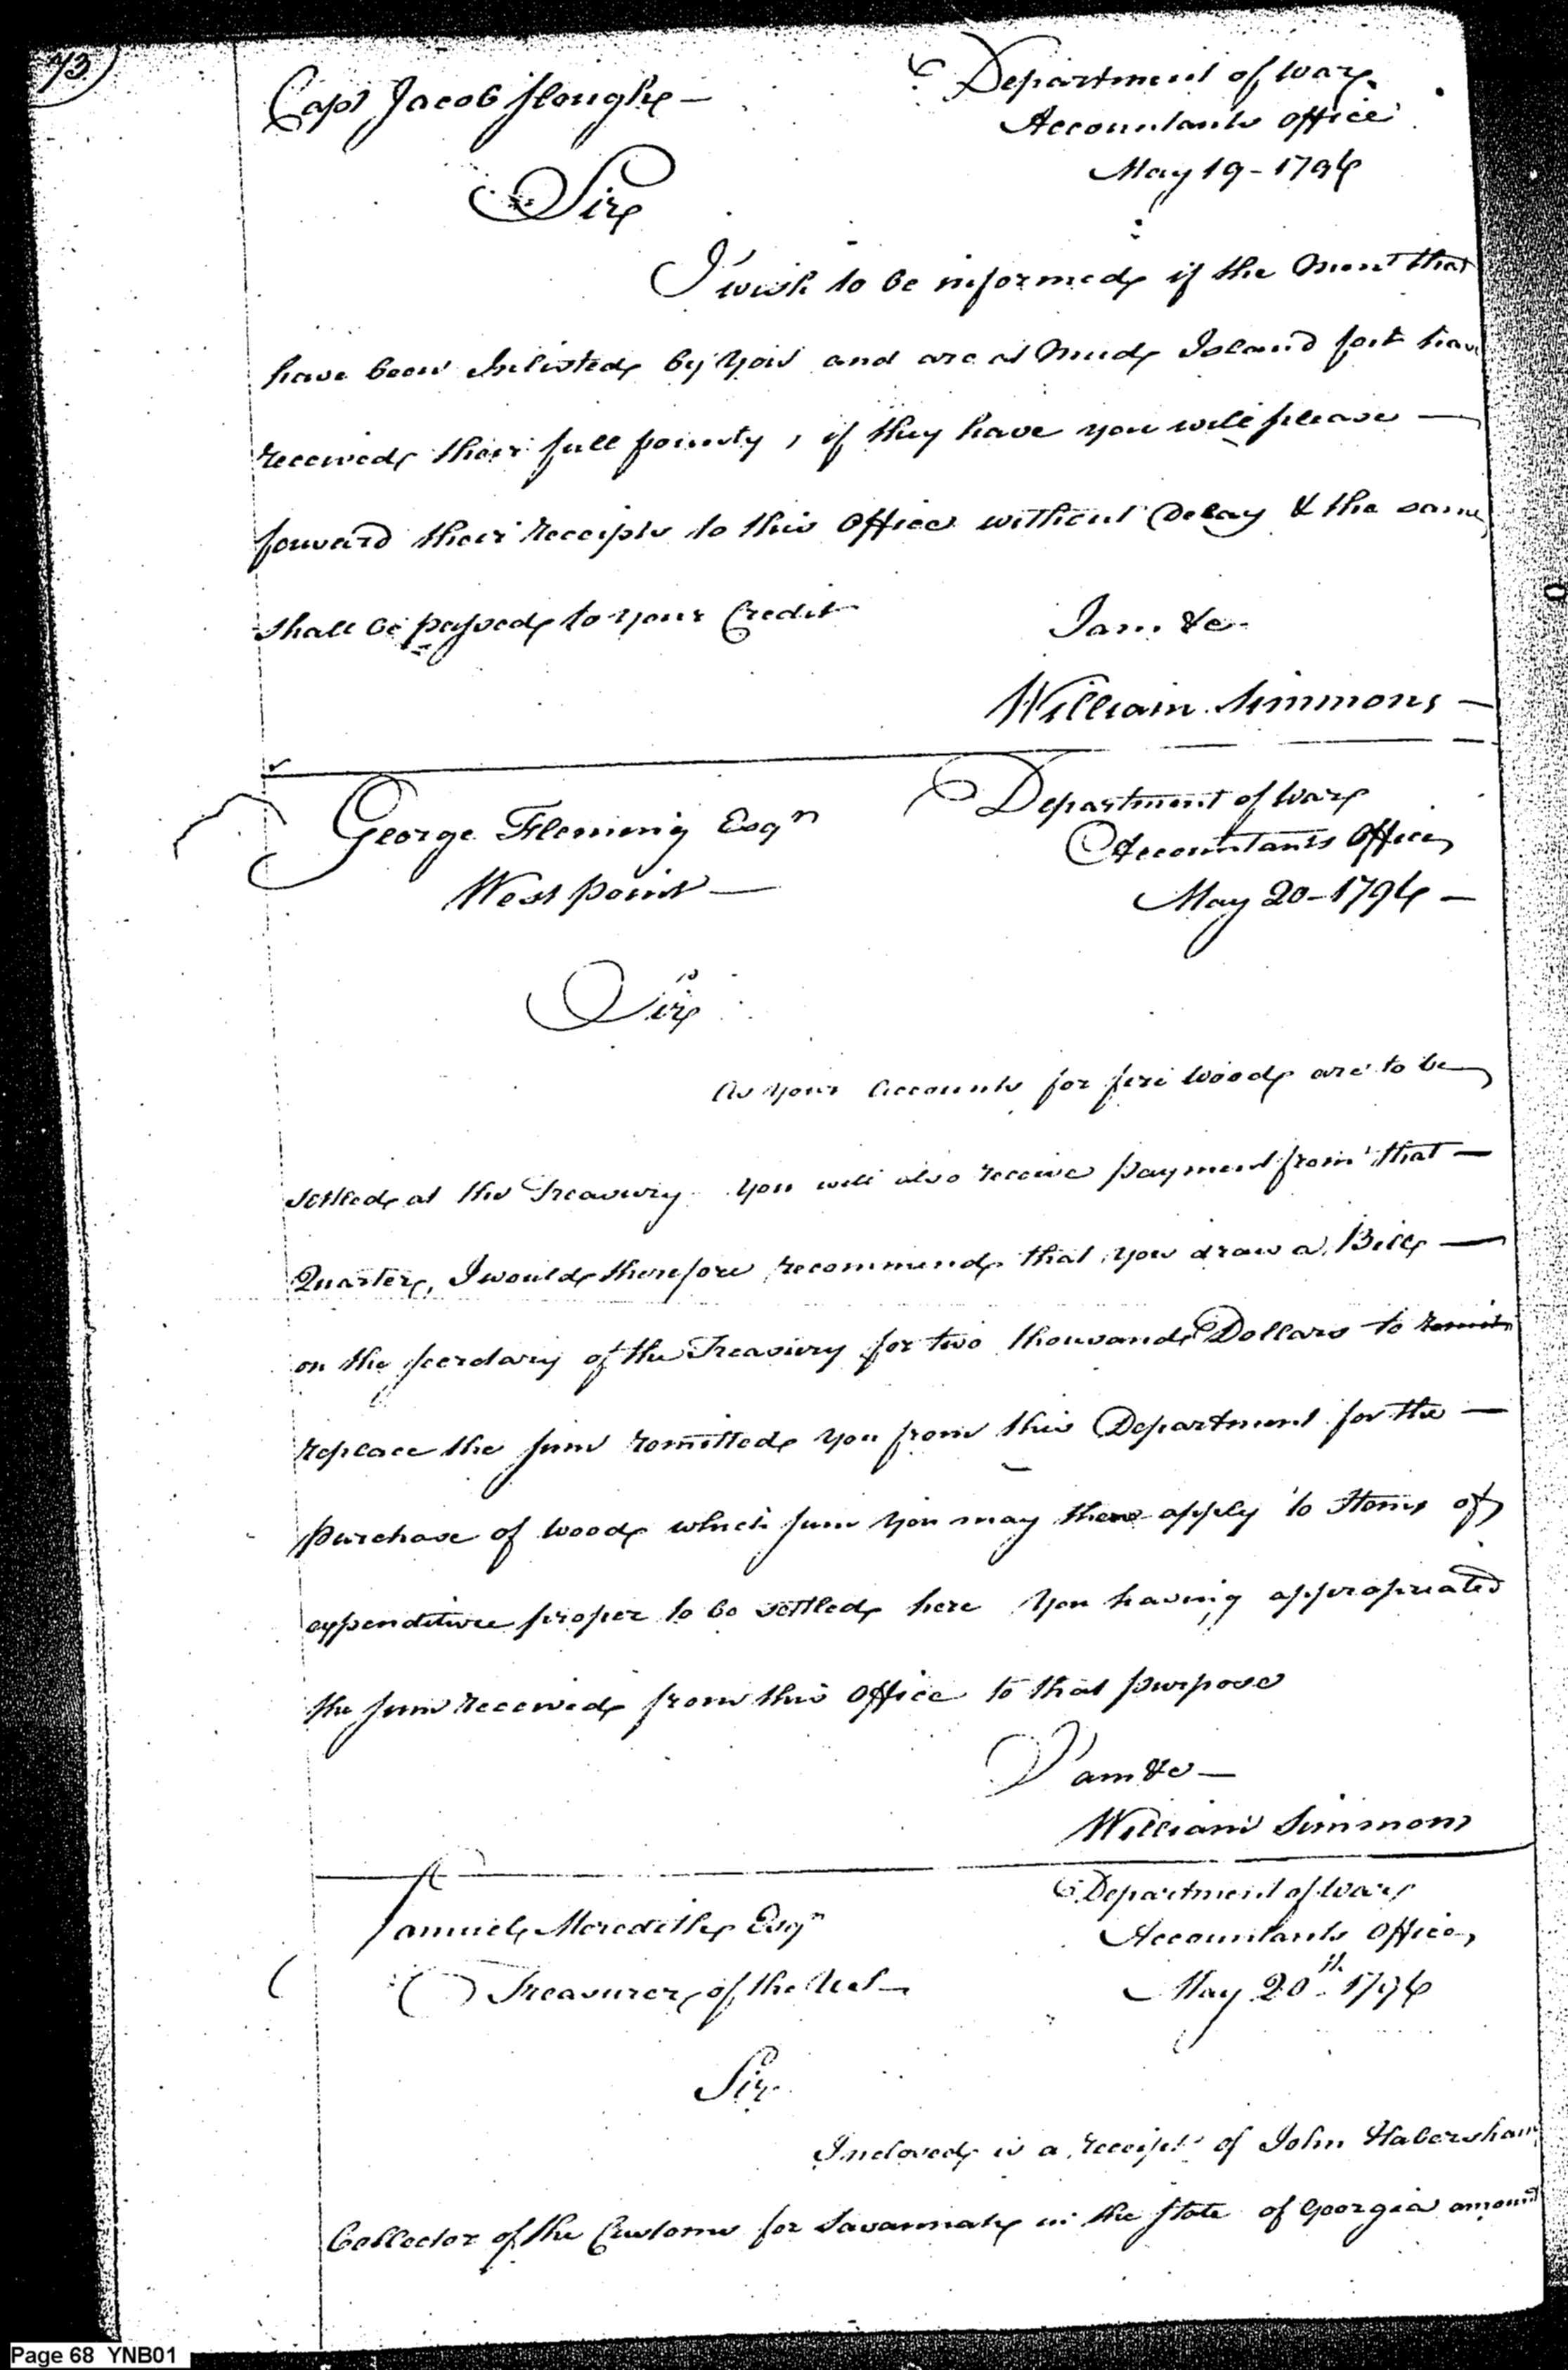 73
Capt Jacob Slough —
Department of War
Accountants Office
May 19 - 1796
Sir
I wish to be informed if the Men that
have been Inlisted by you and are at Mud Island fort have
received their full bounty, if they have you will please —
forward their receipts to this Office without Delay & the same
shall be passed to your Credit
I am &c
William Simmons —
George Fleming Esqr
West point —
Department of War
Accountants Office
May 20 - 1796 —
Sir
As your accounts for fire Wood are to be
settled at the Treasury you will also receive payment from that —
Quarter, I would therefore recommend that you draw a Bill —
on the secretary of the Treasury for two thousand Dollars to remit
replace the sum remitted you from this Department for the —
purchase of wood which sum you may then apply to Items of
expenditure proper to be settled here you having appropriated
the sum received from this Office to that purpose
I am &c —
William Simmons
Samuel Meredith Esqr
Treasurer of the U.S —
Department of War
Accountants Office
May 20th 1796
Sir
Inclosed is a receipt of John Habersham
Collector of the Customs for Savannah in the State of Georgia amount
Page 68 YNB01